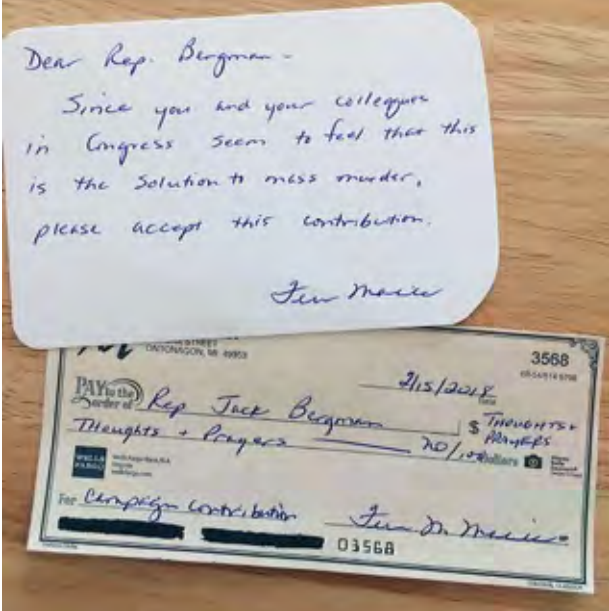 Dear Rep. Bergman -
Since you and your colleagues
in Congress seem to feel that this
is the solution to mass murder,
please accept this contribution.
STREET
ONTONAGON, MI 49953
3568
2/15/2018
Date
PAY to the
order of
Rep Jack Bergman
$ THOUGHTS +
PRAYERS
Thoughts + Prayers
/100 Dollars
WELLS
FARGO
Wells Fargo Bank, N.A.
wellsfargo.com
For Campaign contribution
03568